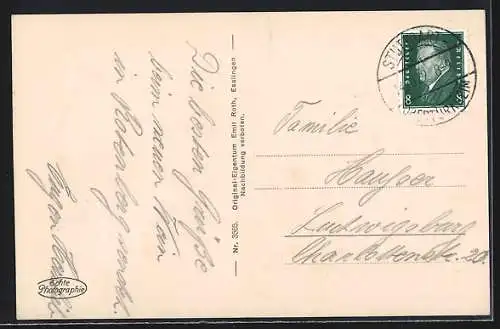 Die besten Grüße
beim neuen Wein
in Rotenberg
Echte
Photographie
Nr. 3555. Original-Eigentum Emil Roth, Esslingen
Nachbildung verboten.
STUTTGART
DEUTSCHES REICH
8 8
Familie
Hausser
Ludwigsburg
Charlottenstr. 20.